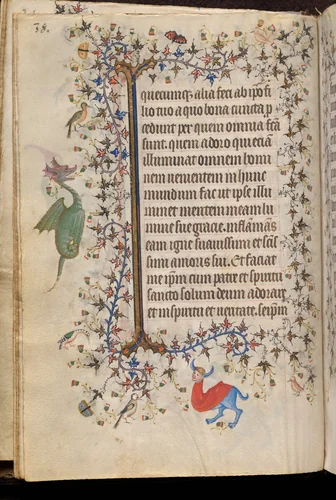 38.
quecumq; alia feci ab ipo fi
lio tuo a quo bona cuncta p
cedunt per quem omnia fcā
sunt. quem adoro qui eciā
illuminat omnem homi
nem venientem in hunc
mundum fac ut ipse illu
minet mentem meam lu
mine sue gracie. inflāmās
eam igne suavissimi et scī
simi amoris sui. Et faciat
me ipm cum patre et spiritu
sancto solum deum adorare
et in spiritu et veritate. serpm